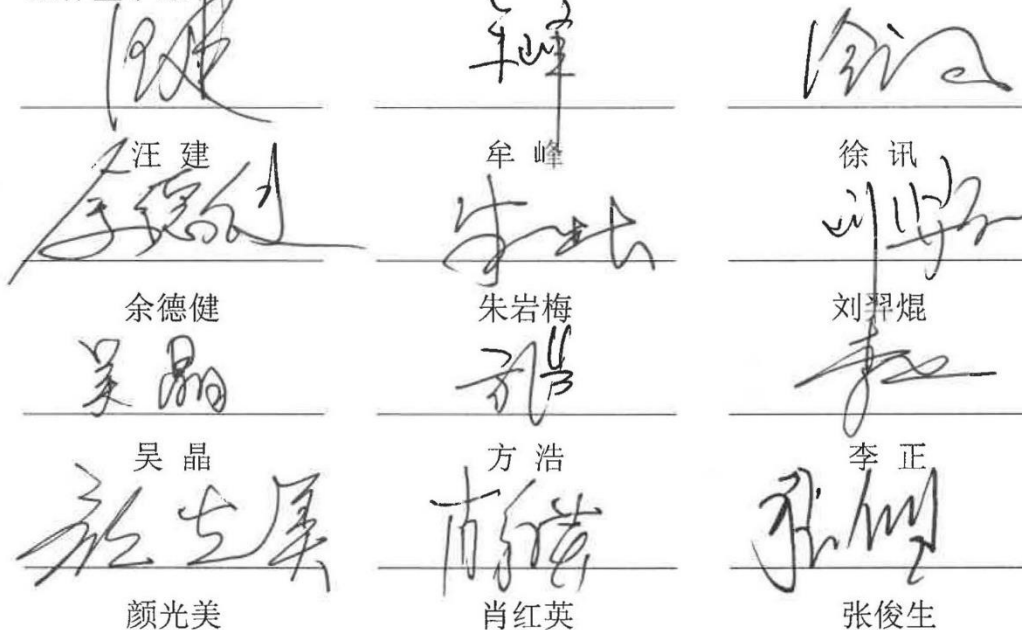 汪 建 牟 峰 徐 讯
余德健 朱岩梅 刘羿焜
吴 晶 方 浩 李 正
颜光美 肖红英 张俊生